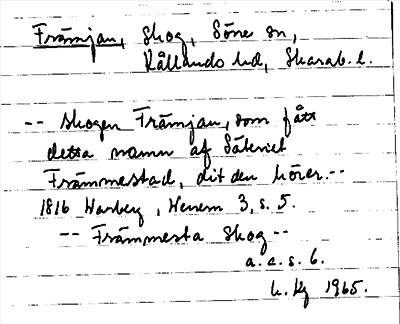 Främjan, Skog, Söne sn,
Kållands hd, Skarab. l.
-- skogen Främjan, som fått
detta namn af Säteriet
Främmestad, dit den hörer. --
1816 Warberg, Wenern 3, s. 5.
-- Främmesta Skog --
a. a. s. 6.
1965.